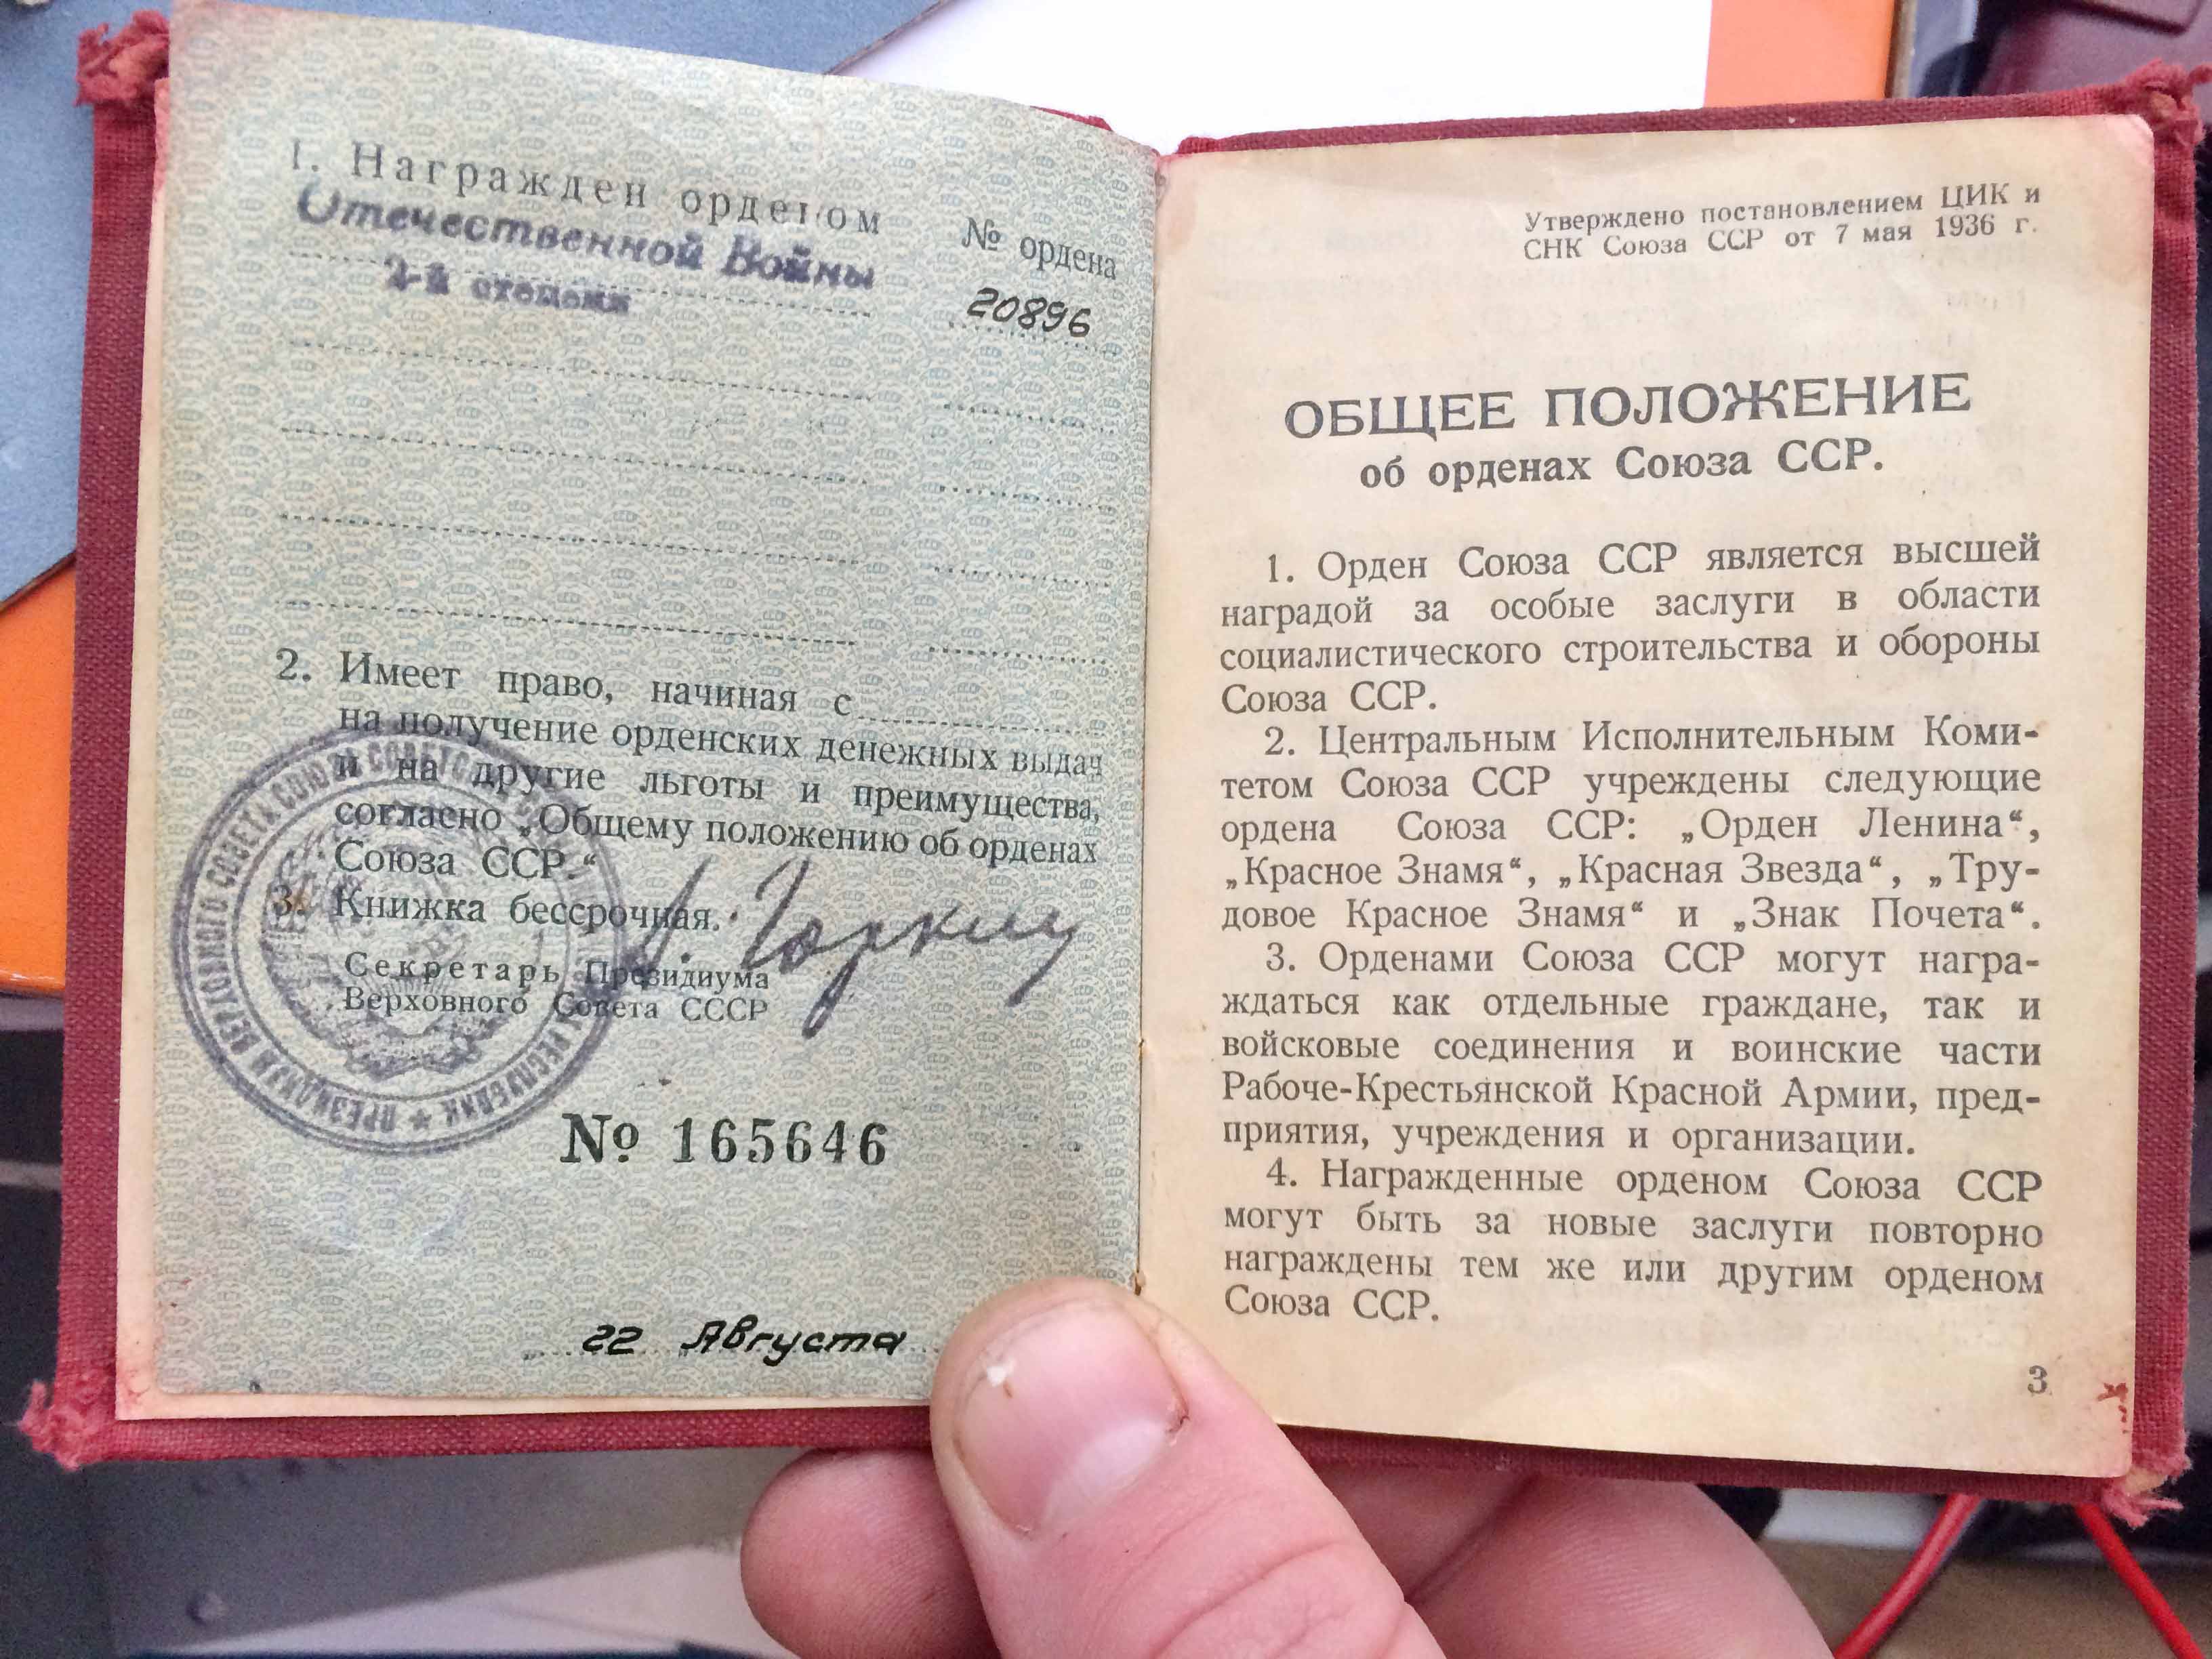 1. Награжден орденом
Отечественной Войны
2-й степени
№ ордена
20896
2. Имеет право, начиная с
на получение орденских денежных выдач
и на другие льготы и преимущества,
согласно „Общему положению об орденах
Союза ССР.“
3. Книжка бессрочная.
А. Горкин
Секретарь Президиума
Верховного Совета СССР
ПРЕЗИДИУМ ВЕРХОВНОГО СОВЕТА СОЮЗА СОВЕТСКИХ РЕСПУБЛИК
№ 165646
22 Августа
Утверждено постановлением ЦИК и
СНК Союза ССР от 7 мая 1936 г.
ОБЩЕЕ ПОЛОЖЕНИЕ
об орденах Союза ССР.
1. Орден Союза ССР является высшей
наградой за особые заслуги в области
социалистического строительства и обороны
Союза ССР.
2. Центральным Исполнительным Коми-
тетом Союза ССР учреждены следующие
ордена Союза ССР: „Орден Ленина“,
„Красное Знамя“, „Красная Звезда“, „Тру-
довое Красное Знамя“ и „Знак Почета“.
3. Орденами Союза ССР могут награ-
ждаться как отдельные граждане, так и
войсковые соединения и воинские части
Рабоче-Крестьянской Красной Армии, пред-
приятия, учреждения и организации.
4. Награжденные орденом Союза ССР
могут быть за новые заслуги повторно
награждены тем же или другим орденом
Союза ССР.
3